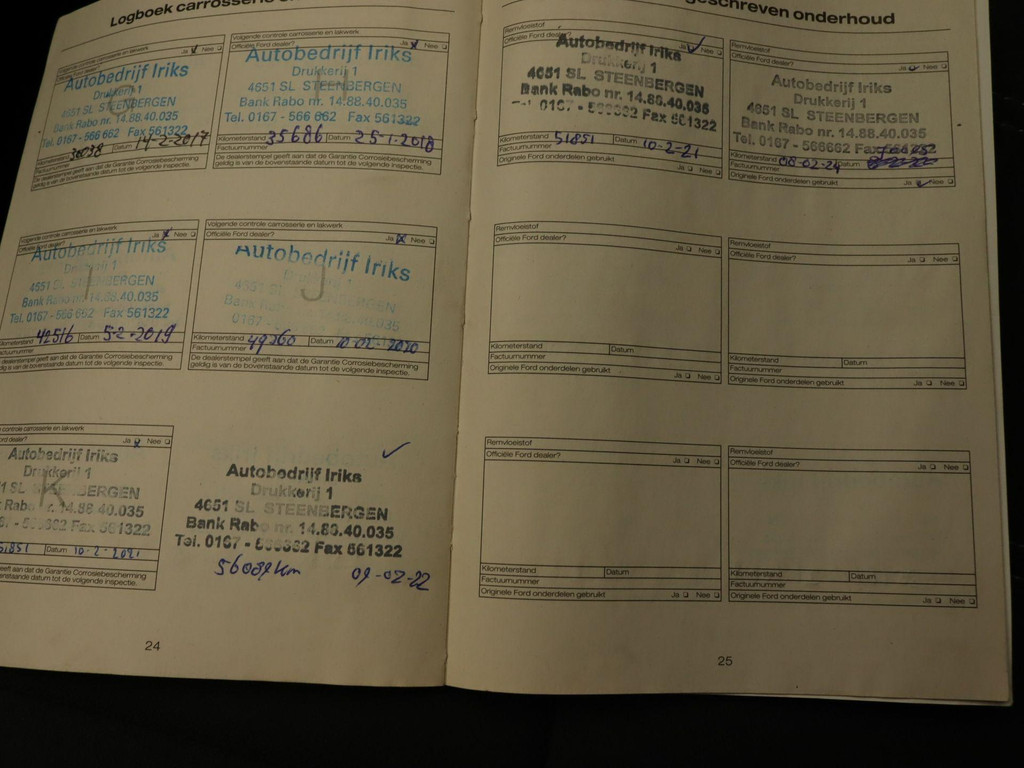 Logboek carrosserie
Volgende controle carrosserie en lakwerk
Ja Nee
Autobedrijf Iriks
Drukkerij 1
4651 SL STEENBERGEN
Bank Rabo nr. 14.88.40.035
Tel. 0167 - 566 662 Fax 561322
30238 Datum 14-2-2017
Factuurnummer
De dealerstempel geeft aan dat de Garantie Corrosiebescherming
geldig is van de bovenstaande datum tot de volgende inspectie.
Volgende controle carrosserie en lakwerk
Officiële Ford dealer? Ja Nee
Autobedrijf Iriks
Drukkerij 1
4651 SL STEENBERGEN
Bank Rabo nr. 14.88.40.035
Tel. 0167 - 566 662 Fax 561322
Kilometerstand 35686 Datum 25-1-2018
Factuurnummer
De dealerstempel geeft aan dat de Garantie Corrosiebescherming
geldig is van de bovenstaande datum tot de volgende inspectie.
Volgende controle carrosserie en lakwerk
Ja Nee
Autobedrijf Iriks
Drukkerij 1
4651 SL STEENBERGEN
Bank Rabo nr. 14.88.40.035
Tel. 0167 - 566 662 Fax 561322
42516 Datum 5-2-2019
De dealerstempel geeft aan dat de Garantie Corrosiebescherming
geldig is van de bovenstaande datum tot de volgende inspectie.
Volgende controle carrosserie en lakwerk
Officiële Ford dealer? Ja Nee
Autobedrijf Iriks
J
Kilometerstand 49260 Datum 10-02-2020
Factuurnummer
De dealerstempel geeft aan dat de Garantie Corrosiebescherming
geldig is van de bovenstaande datum tot de volgende inspectie.
controle carrosserie en lakwerk
Ford dealer? Ja Nee
Autobedrijf Iriks
Drukkerij 1
K
Bank Rabo nr. 14.88.40.035
Fax 561322
51851 Datum 10-2-2021
geeft aan dat de Garantie Corrosiebescherming
bovenstaande datum tot de volgende inspectie.
Autobedrijf Iriks
Drukkerij 1
4651 SL STEENBERGEN
Bank Rabo nr. 14.88.40.035
Tel. 0167 - Fax 561322
56089 km 09-02-22
24
geschreven onderhoud
Remvloeistof
Officiële Ford dealer? Ja Nee
Autobedrijf Iriks
Drukkerij 1
4651 SL STEENBERGEN
Bank Rabo nr. 14.88.40.035
0167 - Fax 561322
Kilometerstand 51851 Datum 10-2-21
Factuurnummer
Originele Ford onderdelen gebruikt Ja Nee
Remvloeistof
Officiële Ford dealer? Ja Nee
Autobedrijf Iriks
Drukkerij 1
4651 SL STEENBERGEN
Bank Rabo nr. 14.88.40.035
Tel. 0167 - 566662
Kilometerstand 08-02-24 Datum
Factuurnummer
Originele Ford onderdelen gebruikt Ja Nee
Remvloeistof
Officiële Ford dealer?
Ja Nee
Kilometerstand Datum
Factuurnummer
Originele Ford onderdelen gebruikt Ja Nee
Remvloeistof
Officiële Ford dealer? Ja Nee
Kilometerstand Datum
Factuurnummer
Originele Ford onderdelen gebruikt Ja Nee
Remvloeistof
Officiële Ford dealer? Ja Nee
Kilometerstand Datum
Factuurnummer
Originele Ford onderdelen gebruikt Ja Nee
Remvloeistof
Officiële Ford dealer? Ja Nee
Kilometerstand Datum
Factuurnummer
Originele Ford onderdelen gebruikt Ja Nee
25